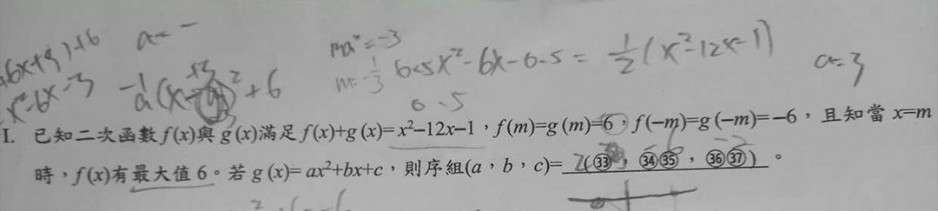 6x+9)+6
a=-
ma²=-3
x²-6x-3
m=-1/3
0.5x²-6x-0.5=½(x²-12x-1)
a=3
+6
0.5
I. 已知二次函數 f(x)與 g(x)滿足 f(x)+g(x)=x²−12x−1,f(m)=g(m)=6,f(−m)=g(−m)=−6,且知當 x=m
時,f(x)有最大值 6。若 g(x)=ax²+bx+c,則序組(a,b,c)= (㉝,㉞㉟,㊱㊲)。